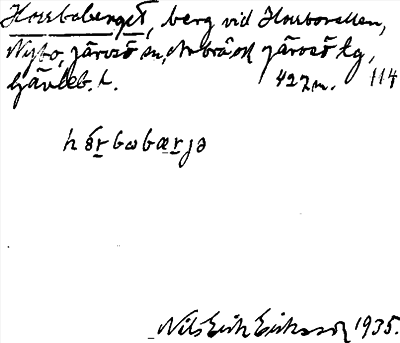 Horrboberget, berg vid Horrbovallen,
Nybo, Järvsö sn, Arbrå ok Järvsö tg,
Gävleb. l. 427m. 114
hȯrbωbærjə
Nils Erik Eriksson 1935.